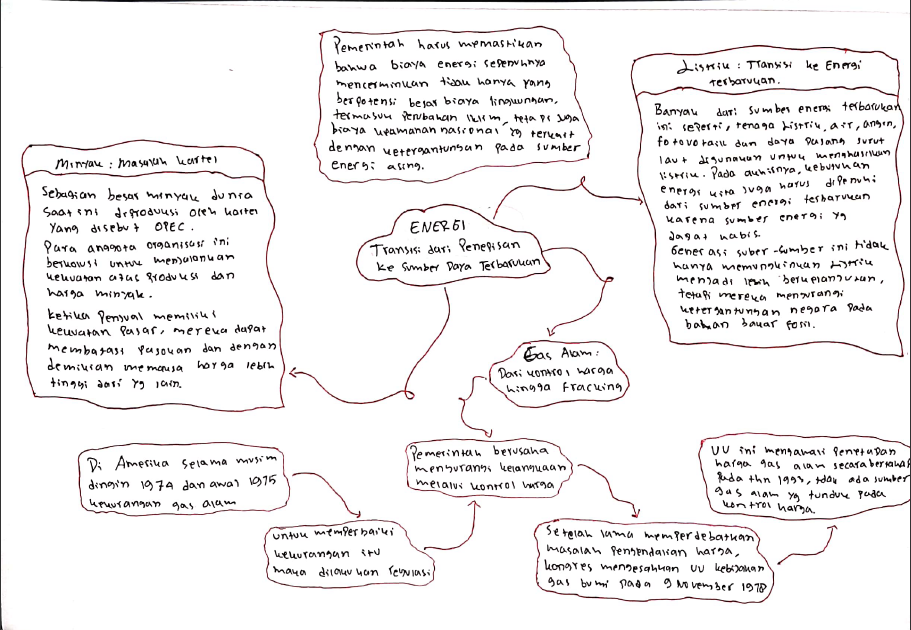 Pemerintah harus memastikan
bahwa biaya energi sepenuhnya
mencerminkan tidak hanya yang
berpotensi besar biaya lingkungan,
termasuk Perubahan Iklim, tetapi juga
biaya keamanan nasional yg terkait
dengan ketergantungan pada sumber
energi asing.
Listrik : Transisi ke Energi
terbarukan.
Banyak dari sumber energi terbarukan
ini seperti, tenaga Listrik, air, angin,
fotovotaik dan daya pasang surut
laut digunakan untuk menghasilkan
listrik. Pada akhirnya, kebutuhan
energi kita juga harus dipenuhi
dari sumber energi terbarukan
karena sumber energi yg
dapat habis.
Generasi suber-sumber ini tidak
hanya memungkinkan Listrik
menjadi lebih berkelangsukan,
tetapi mereka mengurangi
ketergantungan negara pada
bahan bakar fosil.
Minyak : Masalah kartel
Sebagian besar minyak dunia
saat ini diproduksi oleh kartel
yang disebut OPEC.
Para anggota organisasi ini
berkolusi untuk menjalankan
kekuatan atas Produksi dan
harga minyak.
ketika Penjual memiliki
kekuatan Pasar, mereka dapat
membatasi Pasokan dan dengan
demikian memaksa harga lebih
tinggi dari yg lain.
ENERGI
Transisi dari Penipisan
ke Sumber Daya Terbarukan
Gas Alam :
Dari kontrol harga
hingga Fracking
Di Amerika selama musim
dingin 1974 dan awal 1975
kekurangan gas alam
untuk memperbaiki
kekurangan itu
maka dilakukan regulasi
Pemerintah berusaha
mengurangi kelangkaan
melalui kontrol harga
Setelah lama memperdebatkan
masalah Pengendalian harga,
kongres mengesahkan UU kebijakan
gas bumi pada 9 November 1978
UU ini mengawasi Penetapan
harga gas alam secara bertahap
Pada thn 1993, tidak ada sumber
gas alam yg tunduk pada
kontrol harga.